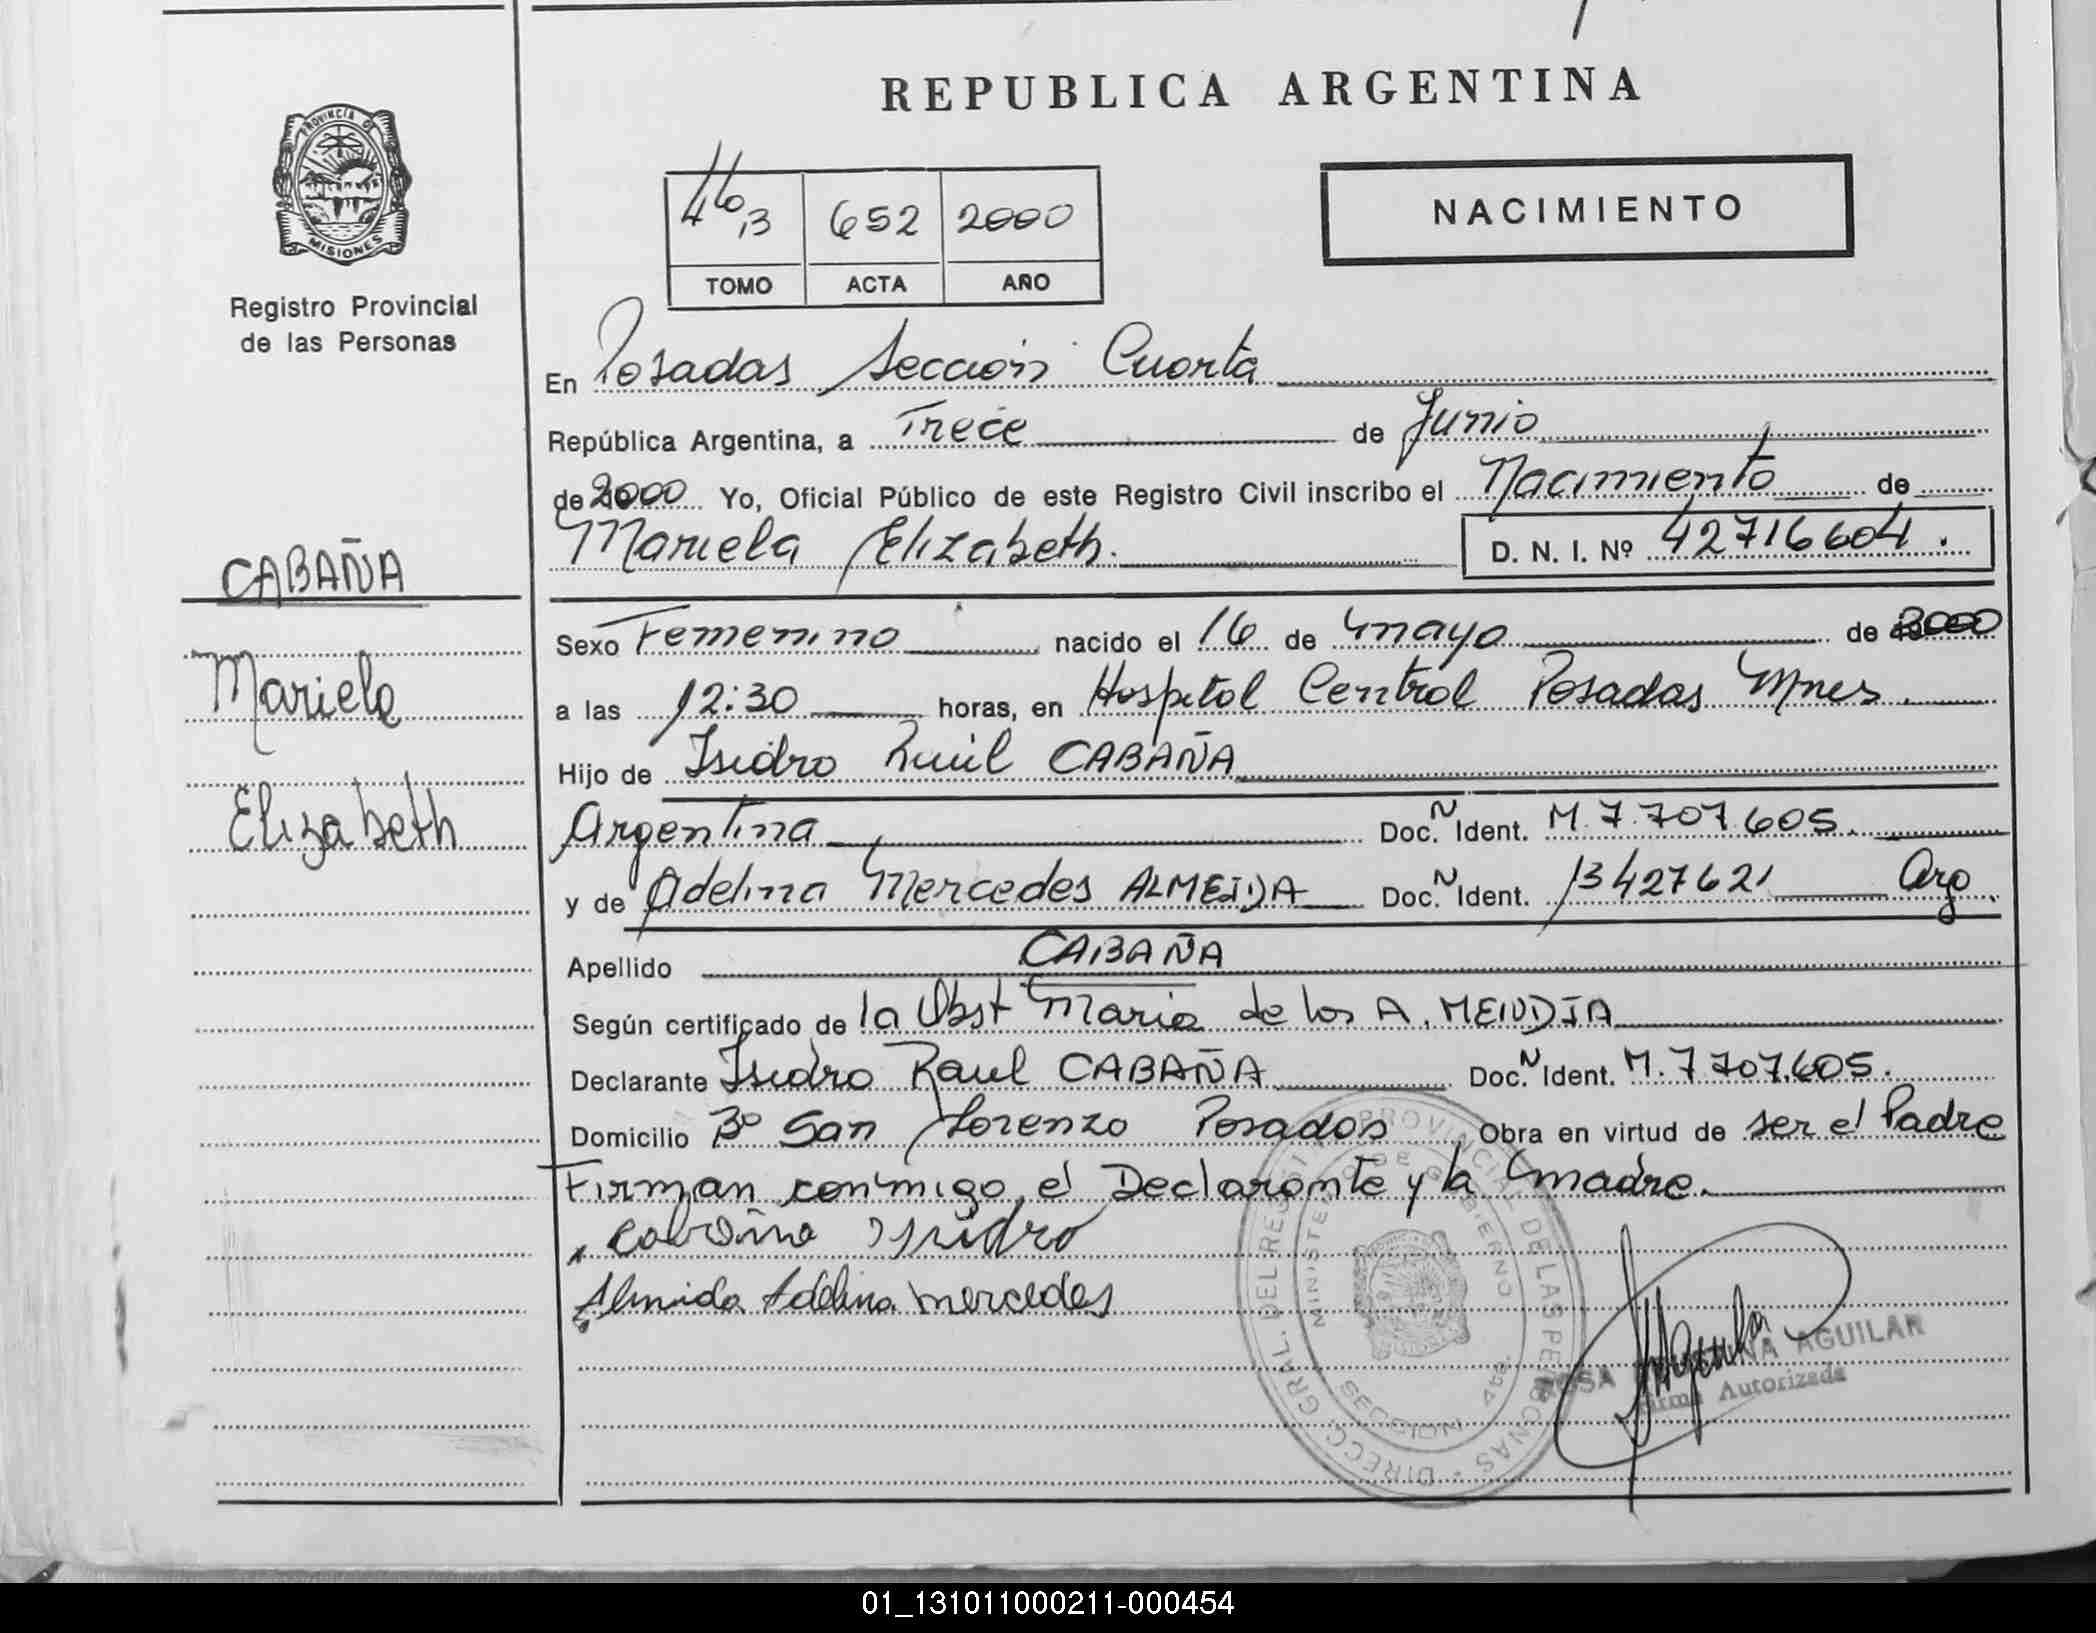 REPUBLICA ARGENTINA
PROVINCIA DE
MISIONES
Registro Provincial
de las Personas
652 2000
TOMO ACTA AÑO
NACIMIENTO
En Posadas Sección Cuarta
República Argentina, a Trece de Junio
de 2000 Yo, Oficial Público de este Registro Civil inscribo el Nacimiento de
Mariela Elizabeth. D. N. I. Nº 42716604.
CABAÑA
Mariela
Elizabeth
Sexo Femenino nacido el 16 de mayo de 2000
a las 12:30 horas, en Hospital Central Posadas Mnes.
Hijo de Isidro Raúl CABAÑA
Argentina Doc. N Ident. M. 7.707.605.
y de Adelina Mercedes ALMEIDA Doc. N Ident. 13427621 Arg.
Apellido CABAÑA
Según certificado de la Obst Maria de los A. MENDIA
Declarante Isidro Raul CABAÑA Doc. N Ident. M. 7707.605.
Domicilio Bº San Lorenzo Posadas Obra en virtud de ser el Padre
Firman conmigo, el Declarante y la madre.
Cabaña Isidro
Almida Adelina mercedes
DIRECC. GRAL. DEL REGISTRO PROVINCIAL DE LAS PERSONAS
MINISTERIO DE GOBIERNO
SECCION 4ta.
AGUILAR
Firma Autorizada
01_131011000211-000454